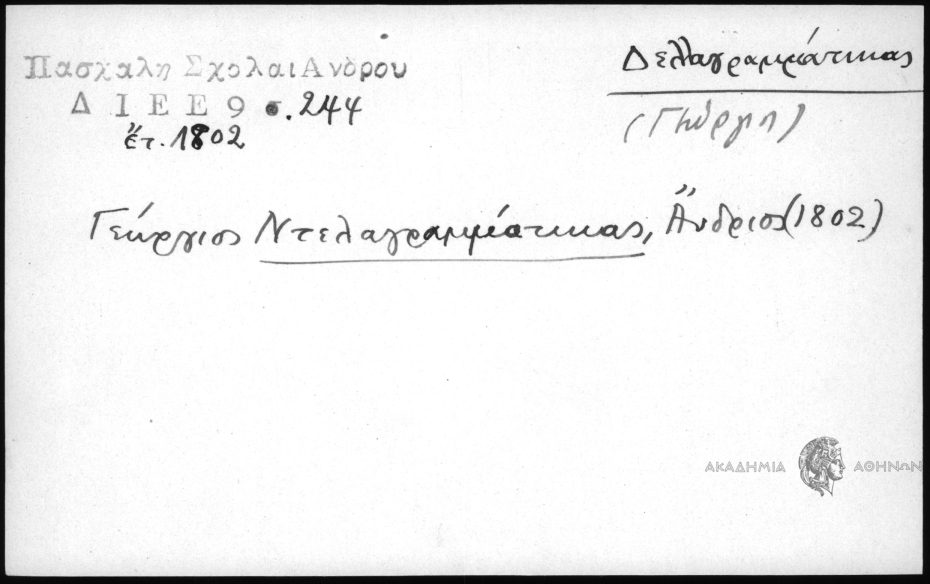 Πασχαλη Σχολαι Ανδρου
Δ Ι Ε Ε 9 σ. 244
ἔτ. 1802
Δελλαγραμμάτικας
(Γιώργη)
Γεώργιος Ντελαγραμμάτικας, Ἄνδριος (1802)
ΑΚΑΔΗΜΙΑ ΑΘΗΝΩΝ